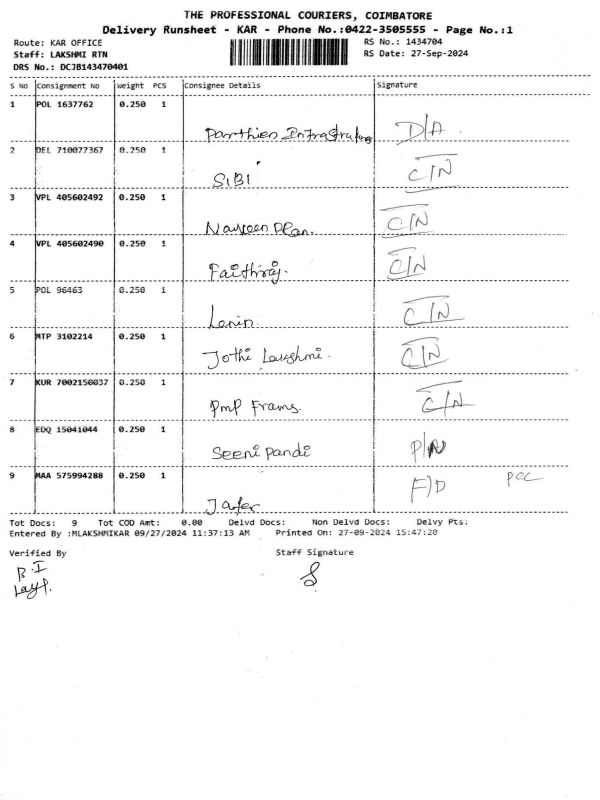 THE PROFESSIONAL COURIERS, COIMBATORE
Delivery Runsheet - KAR - Phone No.:0422-3505555 - Page No.:1
Route: KAR OFFICE RS No.: 1434704
Staff: LAKSHMI RTN RS Date: 27-Sep-2024
DRS No.: DCJB143470401
S No Consignment No Weight PCS Consignee Details Signature
1 POL 1637762 0.250 1
Parthien D/A
2 DEL 710077367 0.250 1
SIBI C/N
3 VPL 405602492 0.250 1
Naveen Plan. C/N
4 VPL 405602490 0.250 1
Faithiraj. C/N
5 POL 96463 0.250 1
Lenin. C/N
6 MTP 3102214 0.250 1
Jothi Lakshmi. C/N
7 KUR 7002150037 0.250 1
PMP Frams. C/N
8 EDQ 15041044 0.250 1
Seeni pandi P/N
9 MAA 575994288 0.250 1
Jafer F/D PCC
Tot Docs: 9 Tot COD Amt: 0.00 Delvd Docs: Non Delvd Docs: Delvy Pts:
Entered By :MLAKSHMIKAR 09/27/2024 11:37:13 AM Printed On: 27-09-2024 15:47:20
Verified By Staff Signature
B.I